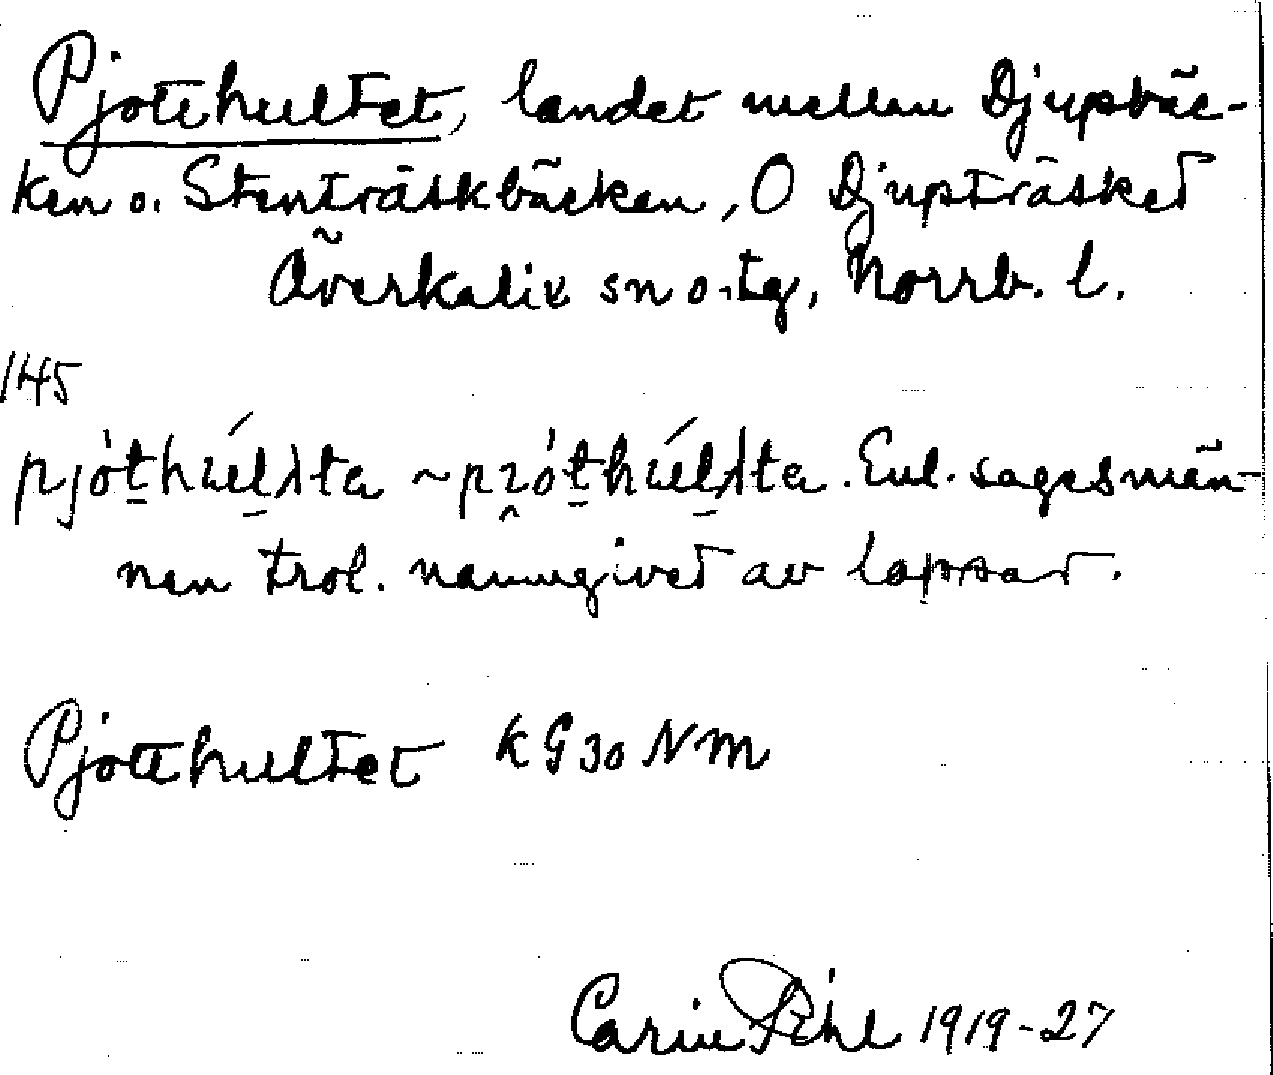 Pjotthultet, landet mellan Djupbäc-
ken o. Stenträskbäcken, O Djupträsket
Överkalix sn o. tg, Norrb. l.
145
pjót̠húĺ̠ʌta ~ pʒót̠húĺ̠ʌta. Enl. sagesmän-
nen trol. namngivet av lappar.
Pjotthultet KG 30 NM
Carin Pihl 1919-27